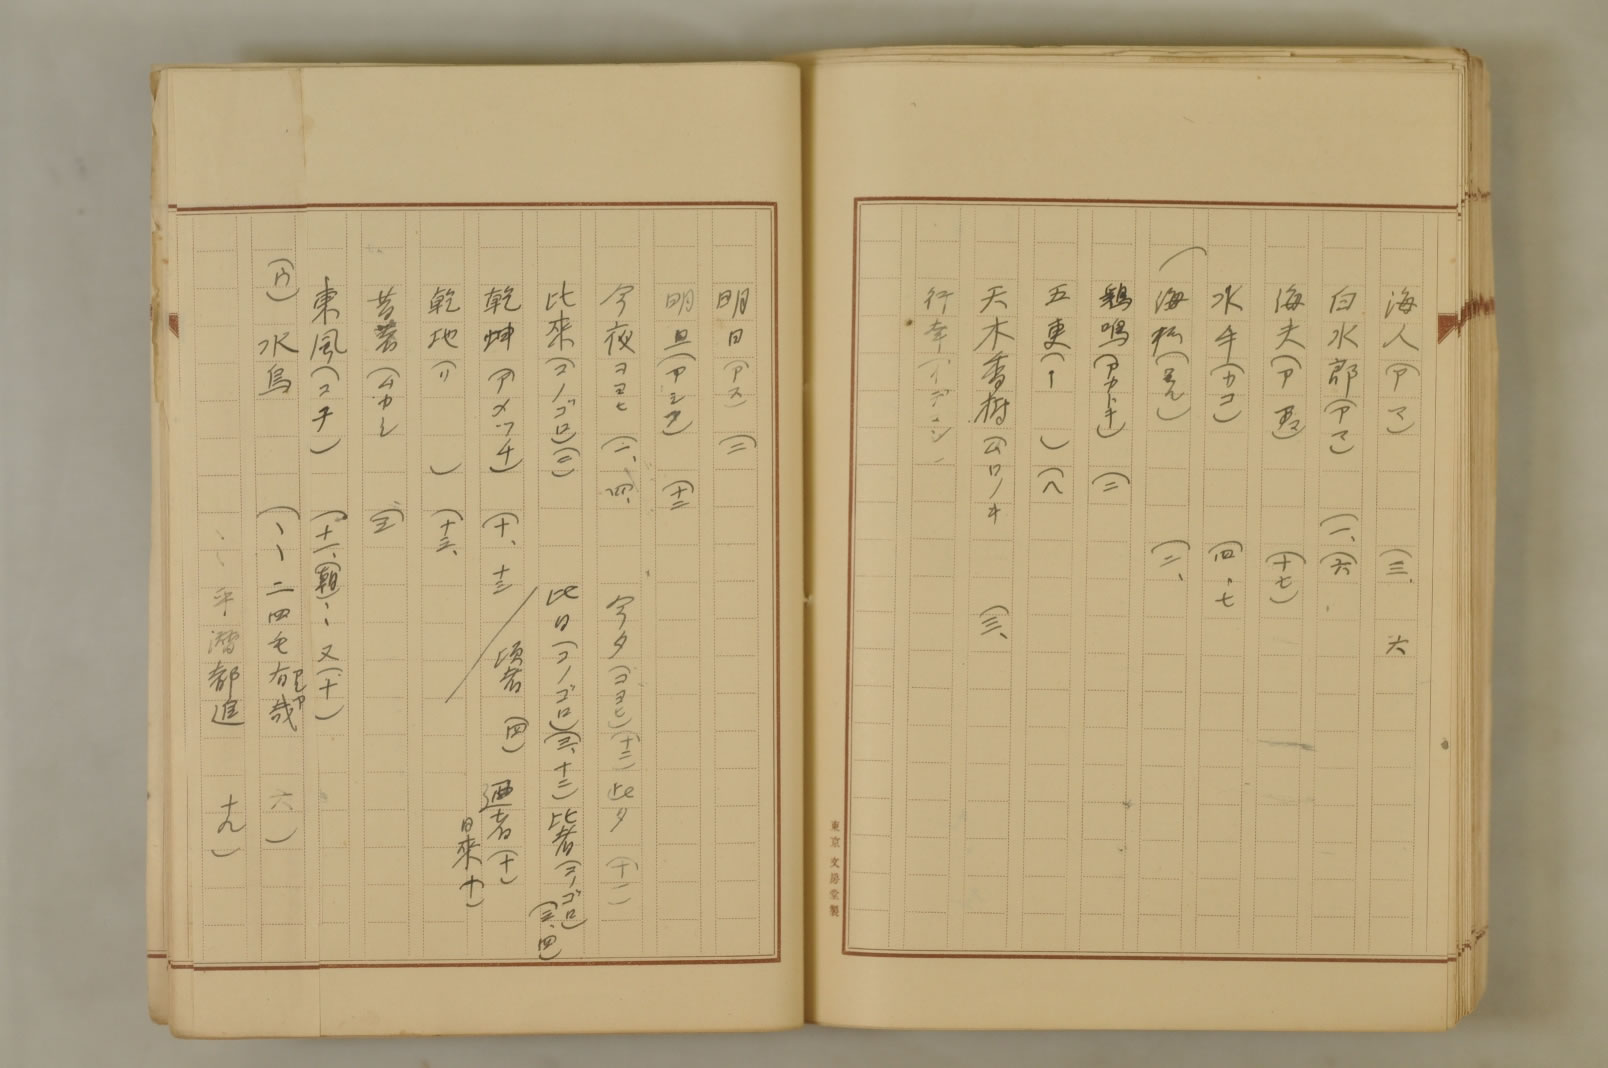 海人(アマ) (三、六
白水郎(アマ) (一、(六
海夫(アマ) (十七)
水手(カコ) (四、七
海松(みる) (二、
鶏鳴(アカトキ) (二
五更(〃) (八
天木香樹(ムロノキ (三、
行幸(イデマシ
東京 文房堂製
明日(アス) (二
明旦(アシタ) (十二
今夜ヨヒ (一、四、 今夕(コヨヒ)(十二 此夕 (十一
比來(コノゴロ)(二) 此日(コノゴロ)(三、十三) 比者(コノゴロ)(三、四)
乾坤(アメツチ) (十、十三 頃者(四) 廼者(十) 日來(十)
乾地(〃 ) (十三、
昔者(ムカシ (三
東風(コチ) (十一、(朝)、又(十)
(ウ)水烏 (、、二四毛有哉 六)
、、平潜都追 十九)